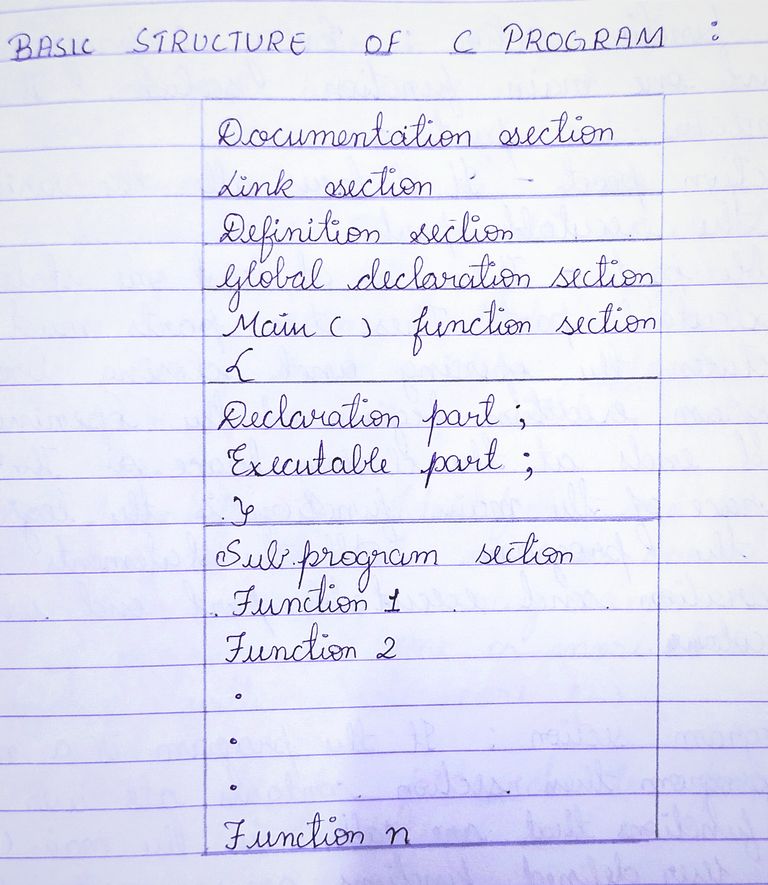 BASIC STRUCTURE OF C PROGRAM :
Documentation section
Link section
Definition section
Global declaration section
Main ( ) function section
{
Declaration part ;
Executable part ;
}
Sub program section
Function 1
Function 2
.
.
.
Function n